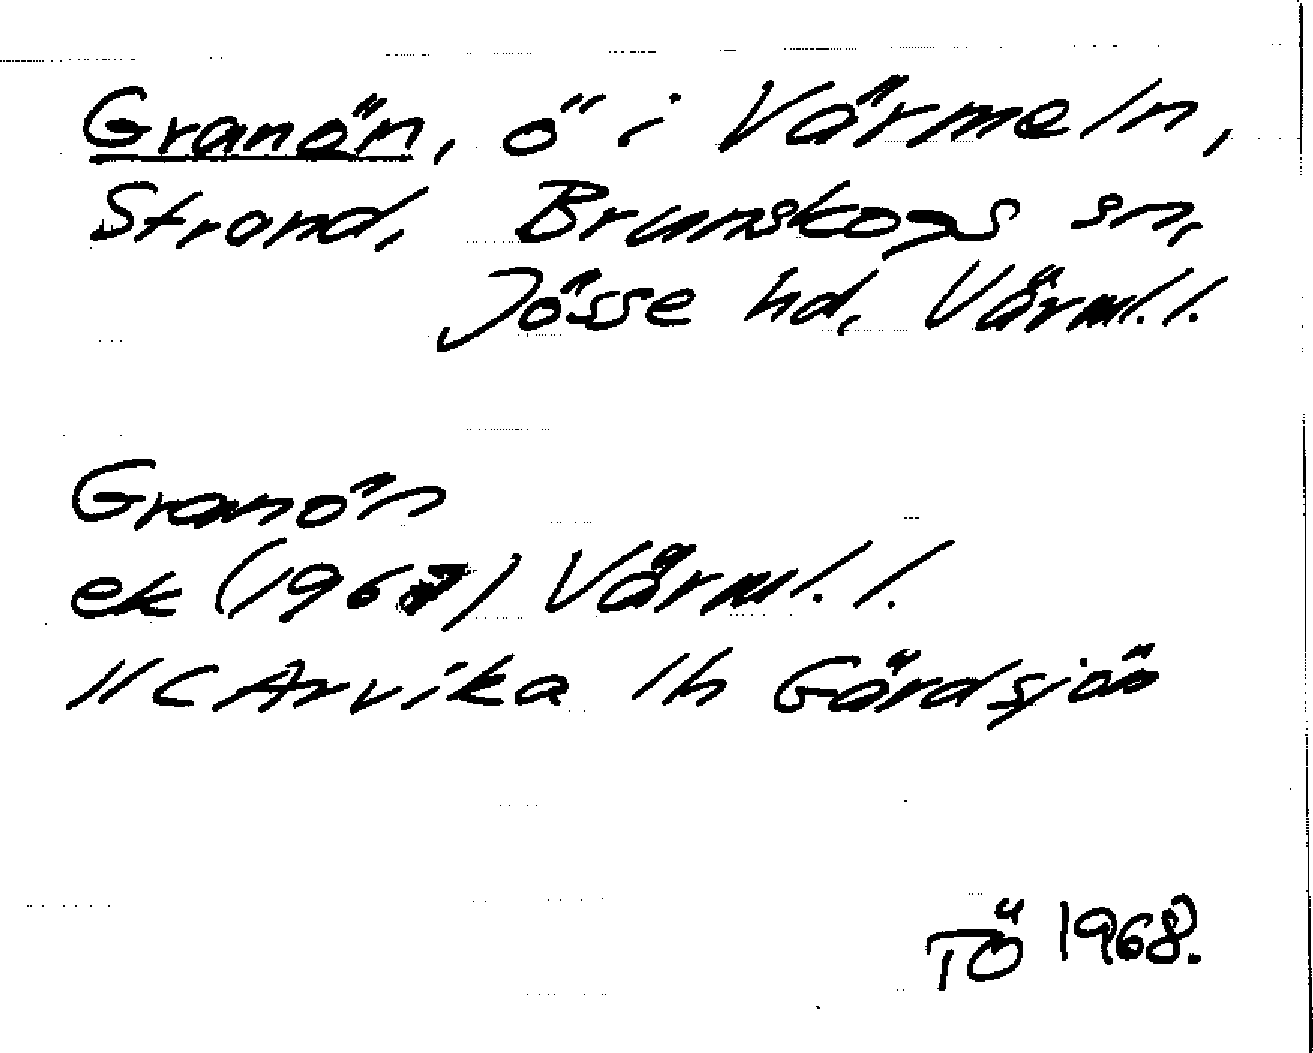 Granön, ö i Värmeln,
Strand, Brunskogs sn,
Jösse hd, Värml. l.
Granön
ek (1967) Värml. l.
11C Arvika 1h Gårdsjö
TÖ 1968.